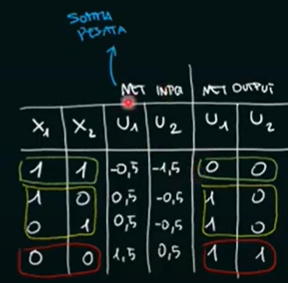 SOMMA
PESATA
NET INPUT NET OUTPUT
X1 X2 U1 U2 U1 U2
1 1 -0,5 -1,5 0 0
1 0 0,5 -0,5 1 0
0 1 0,5 -0,5 1 0
0 0 1,5 0,5 1 1